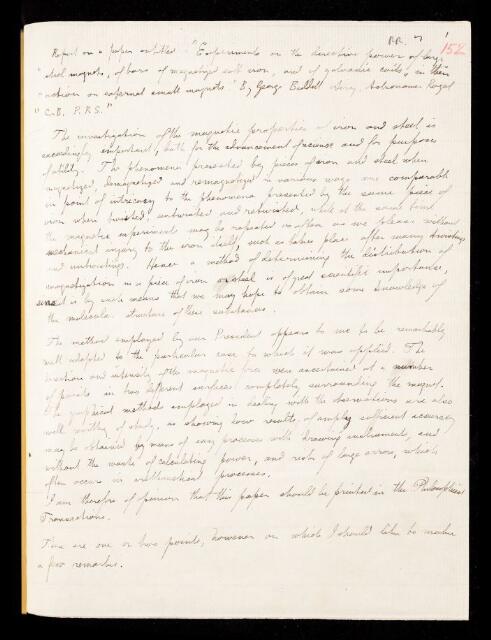 RR. 7
152
Report on a paper entitled "Experiments on the directive power of large
"steel magnets, of bars of magnetized soft iron, and of galvanic coils, in their
"action on external small magnets" By George Biddell Airy, Astronomer Royal
"C.B. P.R.S."
The investigation of the magnetic properties of iron and steel is
exceedingly important, both for the advancement of science and for purposes
of utility. The phenomena presented by pieces of iron and steel when
magnetized, demagnetized and remagnetized in various ways are comparable
in point of intricacy to the phenomena presented by the same piece of
iron when twisted, untwisted and retwisted, while at the same time
the magnetic experiment may be repeated as often as we please without
mechanical injury to the iron itself, such as takes place after many twistings
and untwistings. Hence a method of determining the distribution of
magnetization in a piece of iron or steel is of great scientific importance,
since it is by such means that we may hope to obtain some knowledge of
the molecular structure of these substances.
The method employed by our President appears to me to be remarkably
well adapted to the particular case to which it was applied. The
direction and intensity of the magnetic force were ascertained at a number
of points in two different surfaces completely surrounding the magnet.
The graphical methods employed in dealing with the observations are also
well worthy of study, as showing how results, of amply sufficient accuracy
may be obtained by means of easy processes with drawing instruments, and
without the waste of calculating power, and risk of large errors, which
often occur in arithmetical processes.
I am therefore of opinion that this paper should be printed in the Philosophical
Transactions.
There are one or two points, however on which I should like to make
a few remarks.